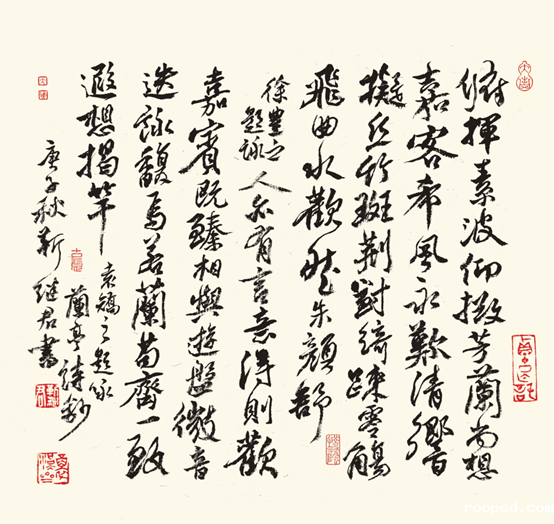 俯揮素波仰掇芳蘭尚想
嘉客希風永歎清響
擬絲竹斑荊對綺疎零觴
飛曲水歡然朱顏舒
徐豐之
題詠
人亦有言意得則歡
嘉賓既臻相與遊盤微音
迭詠馥焉若蘭苟齊一致
遐想揭竿
袁嶠之題詠
蘭亭詩鈔
庚子秋靳继君書
roopsd.com